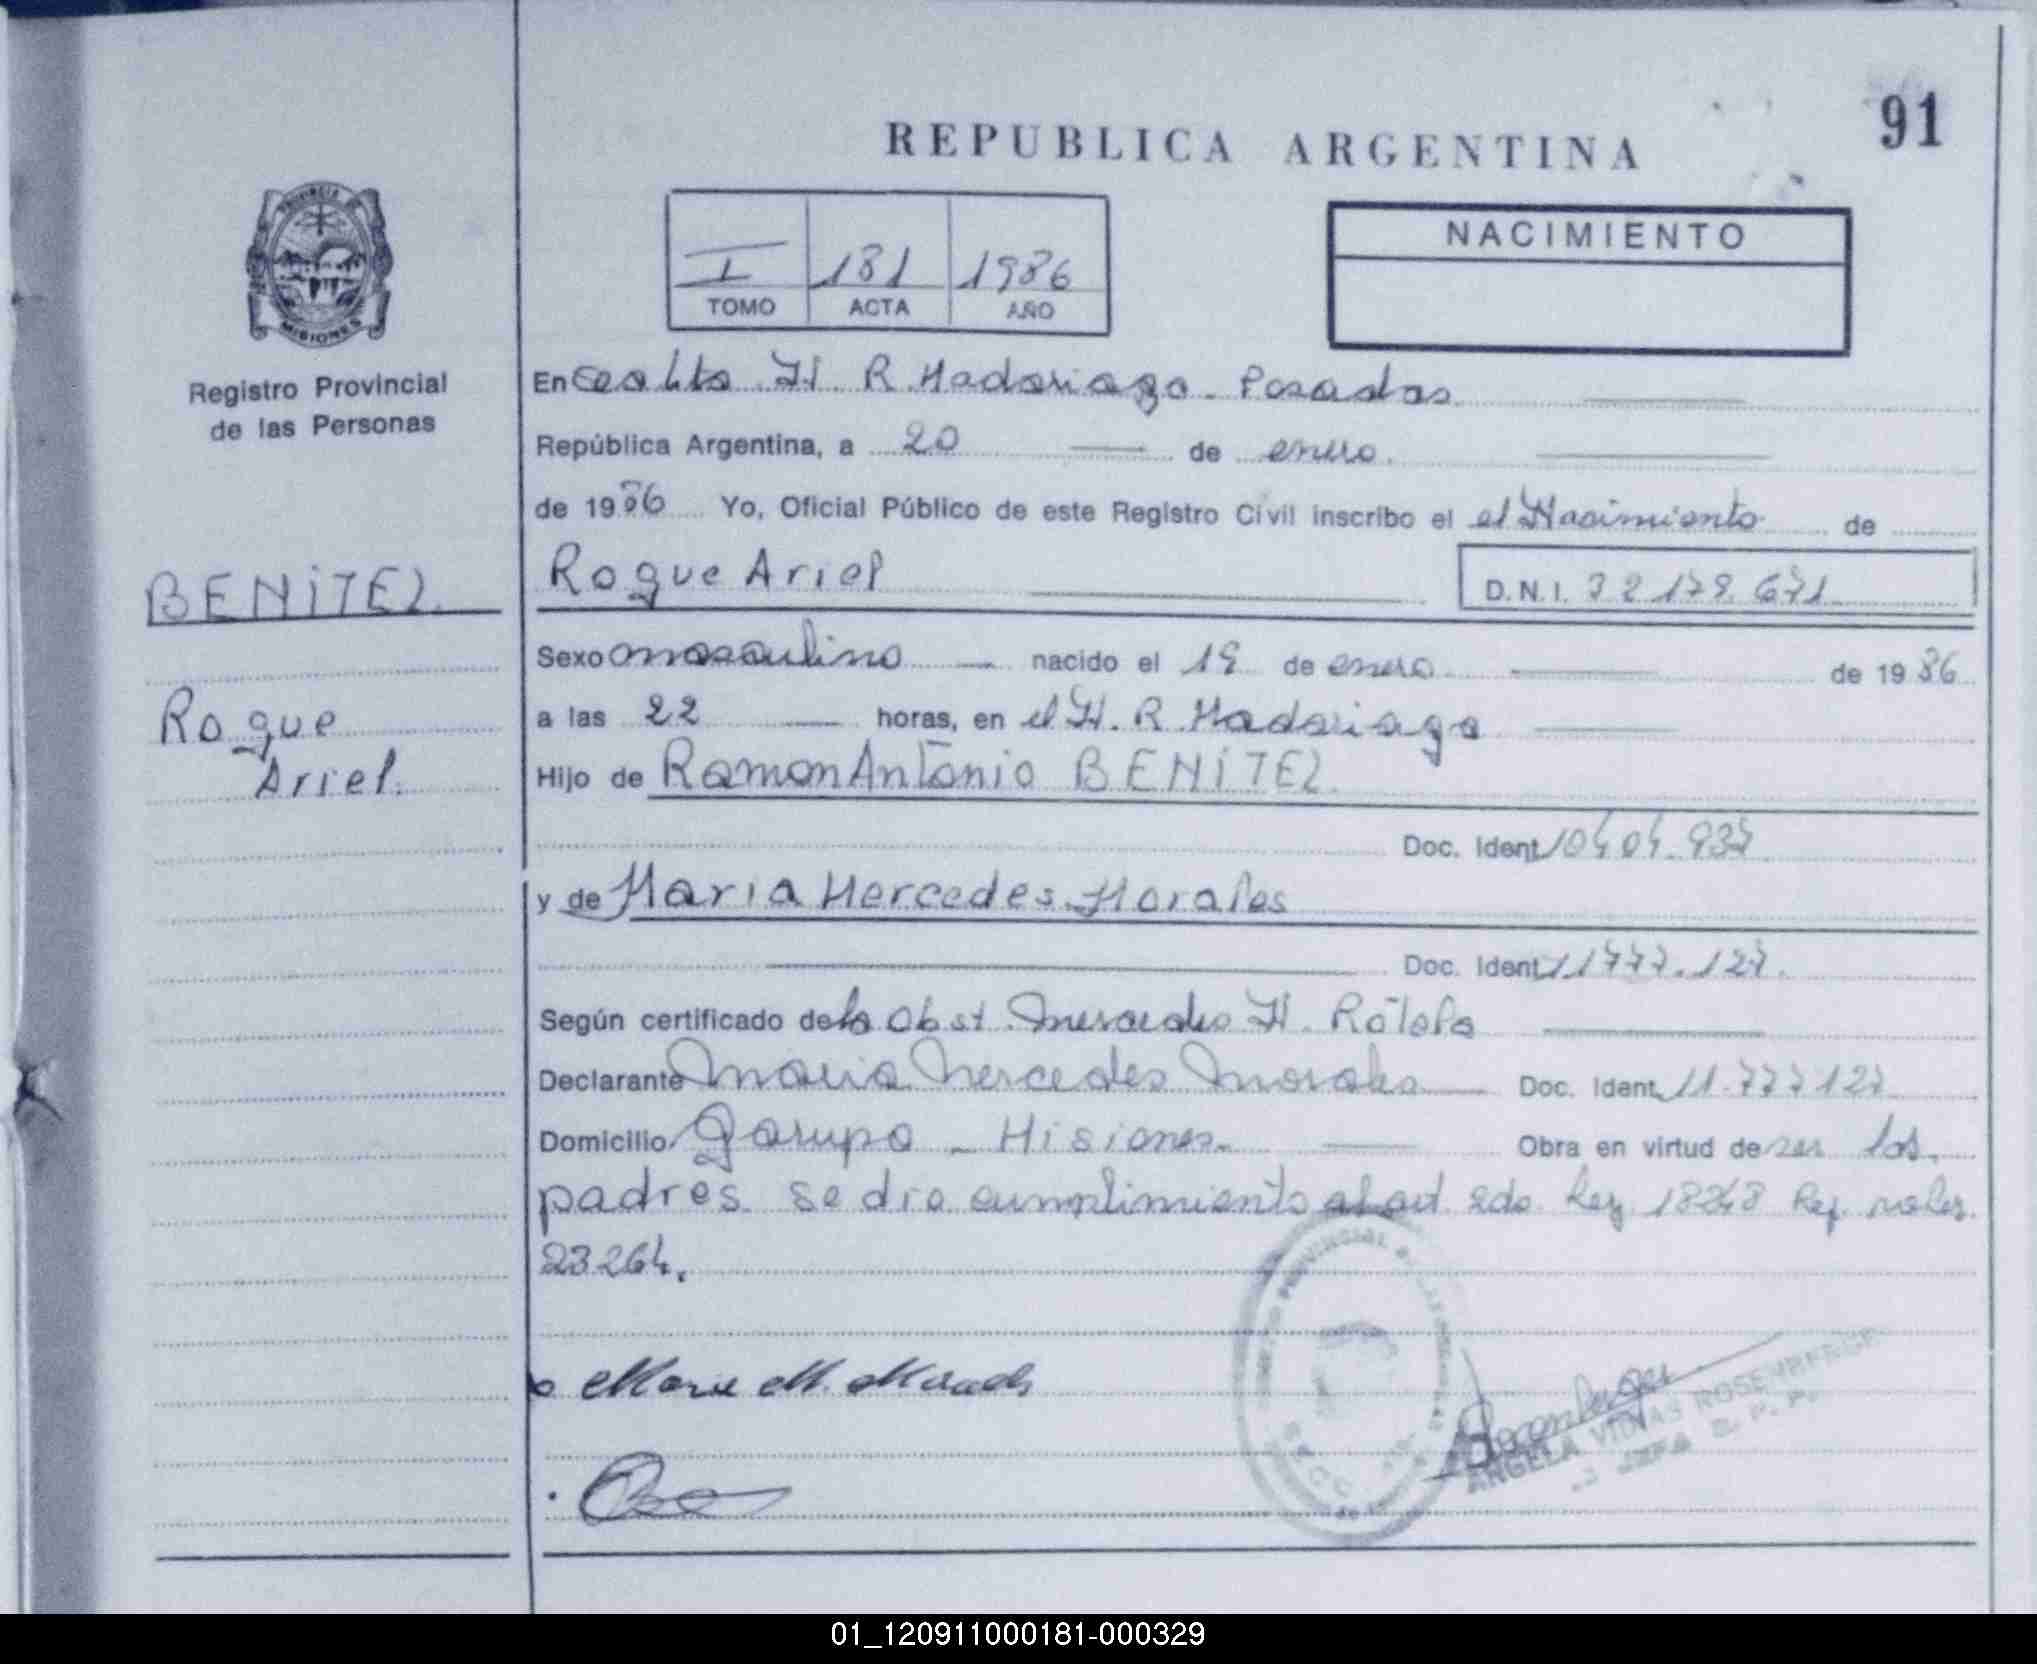 91
REPUBLICA ARGENTINA
PROVINCIA DE
MISIONES
Registro Provincial
de las Personas
I 181 1986
TOMO ACTA AÑO
NACIMIENTO
En H. R. Madariaga - Posadas
República Argentina, a 20 de enero
de 1986 Yo, Oficial Público de este Registro Civil inscribo el el Nacimiento de
BENITEZ
Roque Ariel
D.N.I. 32.179.671
Sexo masculino nacido el 19 de enero de 1986
Roque
Ariel.
a las 22 horas, en el H. R. Madariaga
Hijo de Ramon Antonio BENITEZ
Doc. Ident. 10404.937
y de Maria Mercedes Morales
Doc. Ident. 11777.127.
Según certificado de la Obst. Mercedes H. Rótola
Declarante Maria Mercedes Morales Doc. Ident. 11.777127
Domicilio Garupa - Misiones. Obra en virtud de ser los
padres. se dio cumplimiento al art 2do. Ley 18248 Ref.
23264.
ANGELA ROSENBERGER
01_120911000181-000329